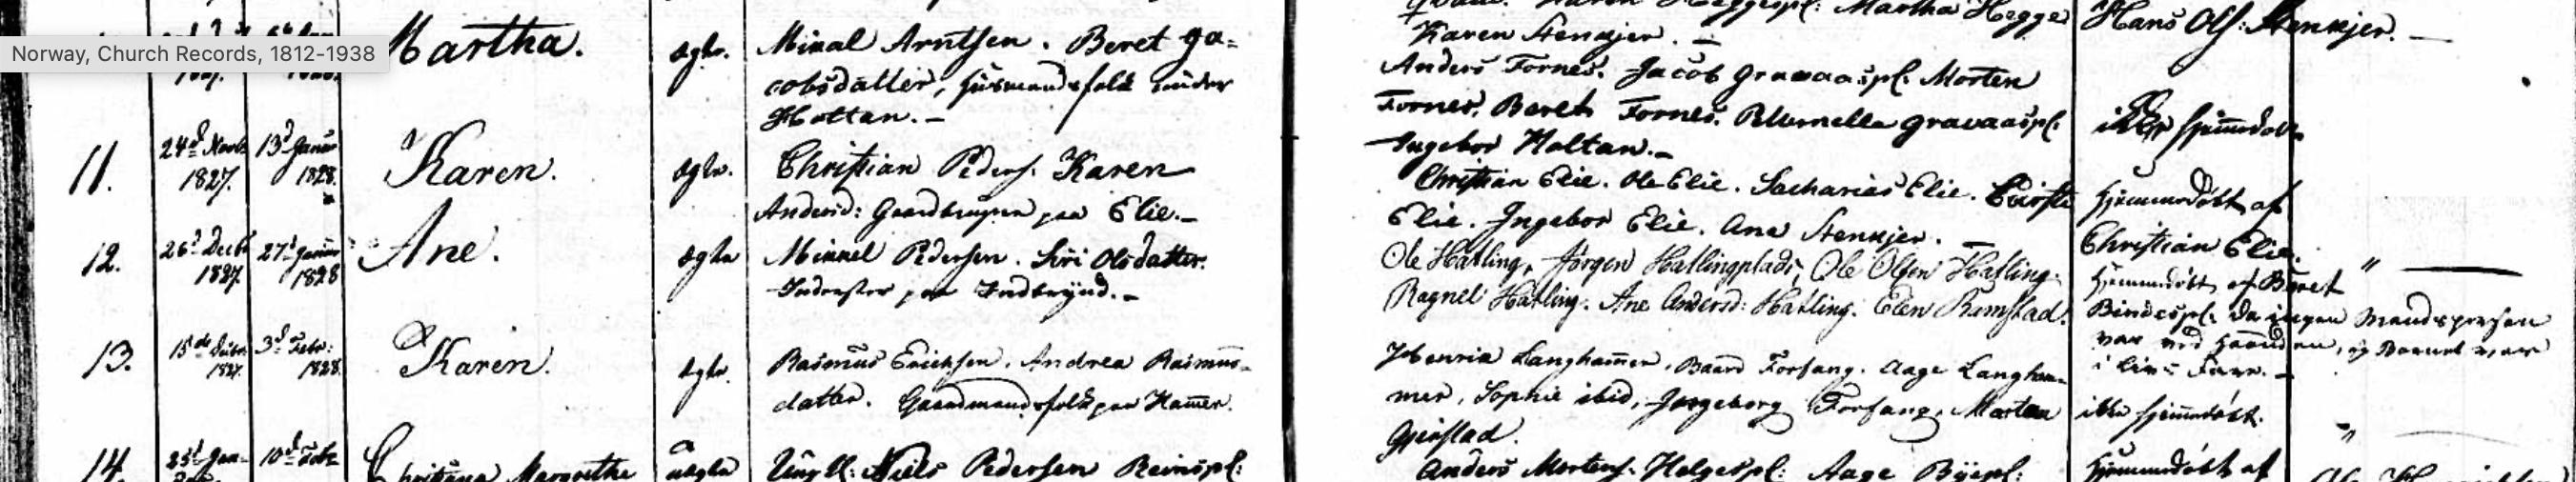 Norway, Church Records, 1812-1938
Martha.
ægte.
Mikal Arntsen. Beret Ja=
cobsdatter, Huusmandsfolk under
Holtan.
Martha Hegge
Karen Stenkjer.
Anders Fornes. Jacob Gravaaspl. Morten
Fornes. Bereth Fornes. Petternella Gravaaspl.
Ingebor Holtan.
Hans Ols: Stenkjer.
ikke hjemmedøbt
11.
24d Novb
1827.
13d Januar
1828.
Karen.
ægte.
Christian Peders. Karen
Andersd: Gaardbruger paa Elie.
Christian Elie. Ole Elie. Sacharias Elie.
Elie. Ingebor Elie. Ane Stenkjer.
Hjemmedøbt af
Christian Elie.
12.
26d Decbr
1827.
27d Januar
1828
Ane.
ægte
Mikkel Pedersen. Siri Olsdatter.
Inderster paa
Ole Hatling, Jørgen Hatlingplads, Ole Olsen Hatling.
Ragnel Hatling. Ane Andersd: Hatling. Elen Remstad.
Hjemmedøbt af Beret
Bindespl. da ingen Mandsperson
var ved Haanden, og Barnet var
i Livs Fare.
13.
15de
1827.
3d Febr:
1828.
Karen.
ægte.
Rasmus Ericksen. Andrea Rasmus=
datter. Gaardmandsfolk paa Hamer.
Henrik Langhamer, Baard Forfang. Aage Langham=
mer, Sophie ibid, Jngeborg Forfang. Morten
Gjerstad.
ikke hjemmedøbt.
14.
10d Febr
Christiana Margrethe
uægte
Ungkl: Niels Pedersen Reinspl:
Anders Mortens. Helgespl: Aage Byepl:
Hjemmedøbt af